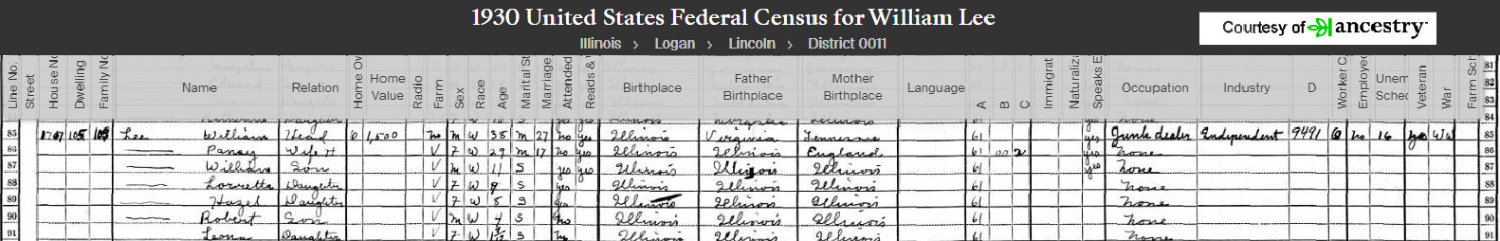 1930 United States Federal Census for William Lee
Courtesy of ancestry
Illinois > Logan > Lincoln > District 0011
Line No. Street House N Dwelling Family No Name Relation Home Ow Home Value Radio Farm Sex Race Age Marital St Marriage Attended Reads & Birthplace Father Birthplace Mother Birthplace Language A B C Immigrat Naturaliz Speaks E Occupation Industry D Worker C Employe Unem Sched Veteran War Farm Sch
81
82
83
84
85 105 Lee William Head 1,500 no M W 35 M 27 no yes Illinois Virginia Tennessee 61 yes Junk dealer Independent 9491 no 16 yes WW 85
86 Pansy Wife H V F W 29 M 17 no yes Illinois Illinois England 61 yes none 86
87 William Son V M W 11 S yes yes Illinois Illinois Illinois 61 yes none 87
88 Lorretta Daughter V F W S yes Illinois Illinois Illinois 61 none 88
89 Hazel Daughter V F W S Illinois Illinois Illinois 61 none 89
90 Robert Son V M W 4 S no Illinois Illinois Illinois 61 none 90
91 Leona Daughter V F W S Illinois Illinois Illinois 61 none 91